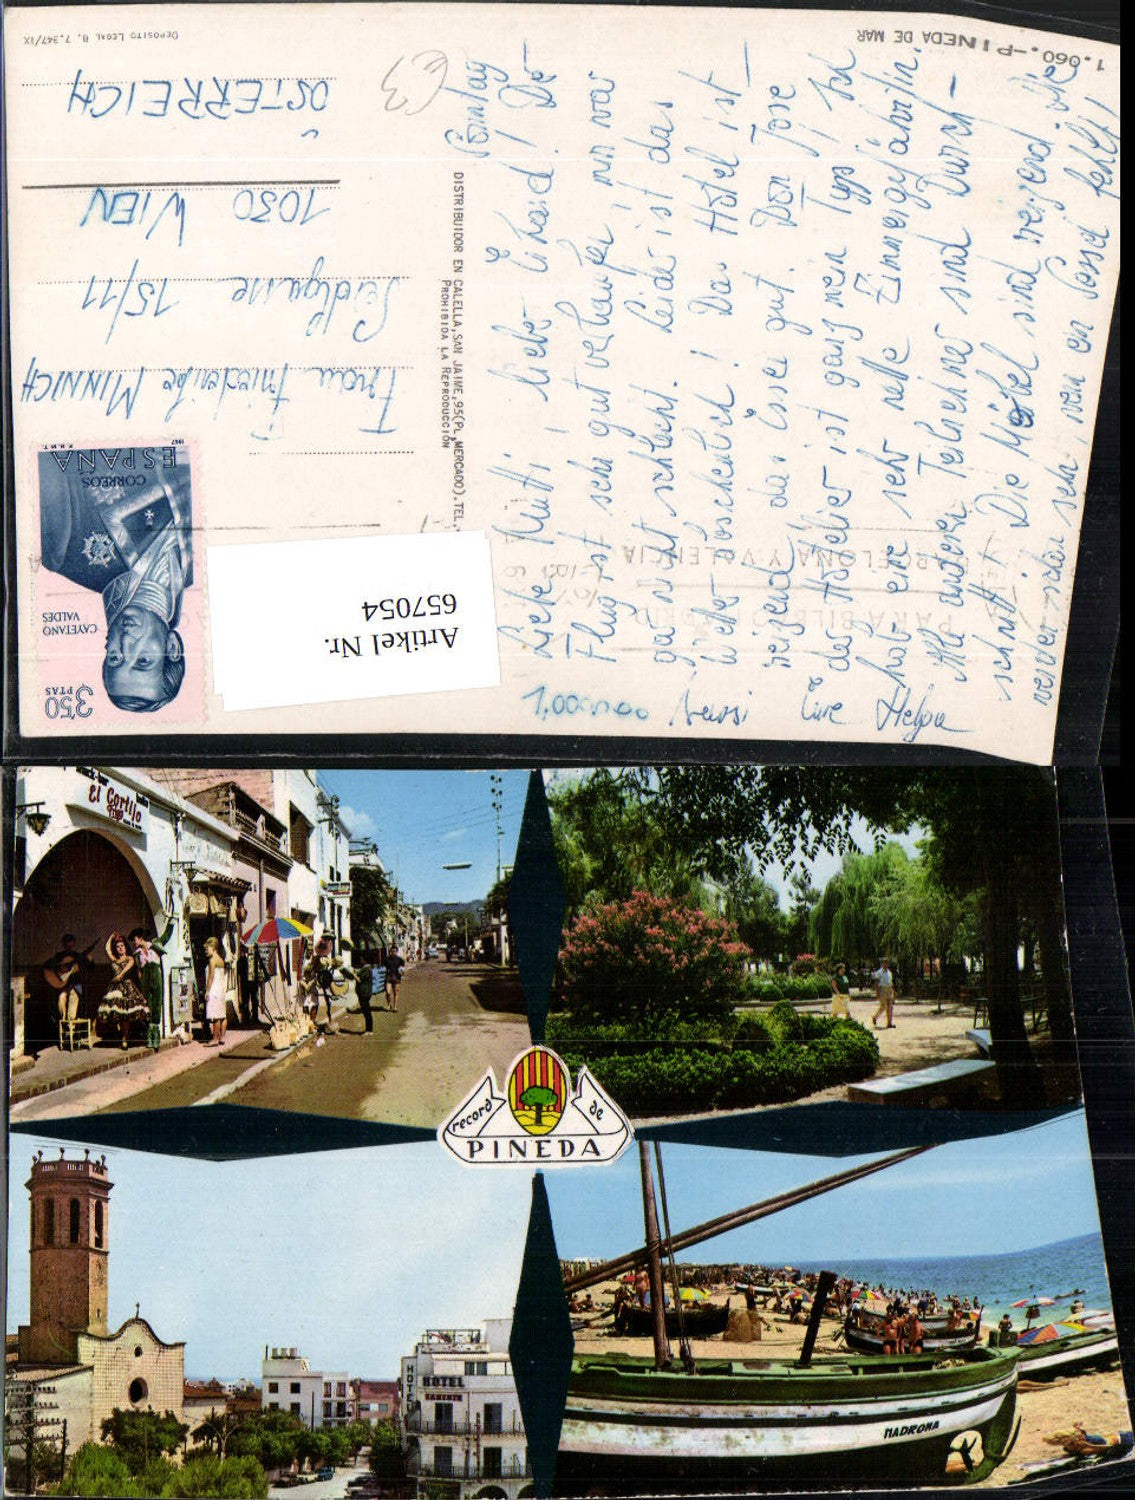 1.060.-PINEDA DE MAR
DEPOSITO LEGAL B. 7.347/IX
Sonntag
Liebe Mutti, liebe Erhard! Der
Flug ist sehr gut verlaufen, nun war
gar nicht schlecht. Leider ist das
Wetter scheußlich! Das Hotel ist
reizend, das Essen gut. Don Jose
der Hotelier ist ganz mein Typ! Ich
hab eine sehr nette Zimmergefährtin.
Alle anderen Teilnehmer sind Durch-
schnitt. Die Möbel sind reizend, Ihr
werdet schon sehn, wenn ein Sessel fehlt!
1,000.000 Bussi Eure Helga
DISTRIBUIDOR EN CALELLA, SAN JAIME, 95 (PL. MERCADO). TEL.
PROHIBIDA LA REPRODUCCIÓN
PARA BILB
BARCELONA Y VALENCIA
3'50 PTAS
CAYETANO VALDES
CORREOS
ESPAÑA
1967
F.N.M.T.
Artikel Nr.
657054
Frau Friederike MINNICH
Seidlgasse 15/11
1030 WIEN
ÖSTERREICH
El Cortijo
record de
PINEDA
HOTEL
HOTEL
MADRONA